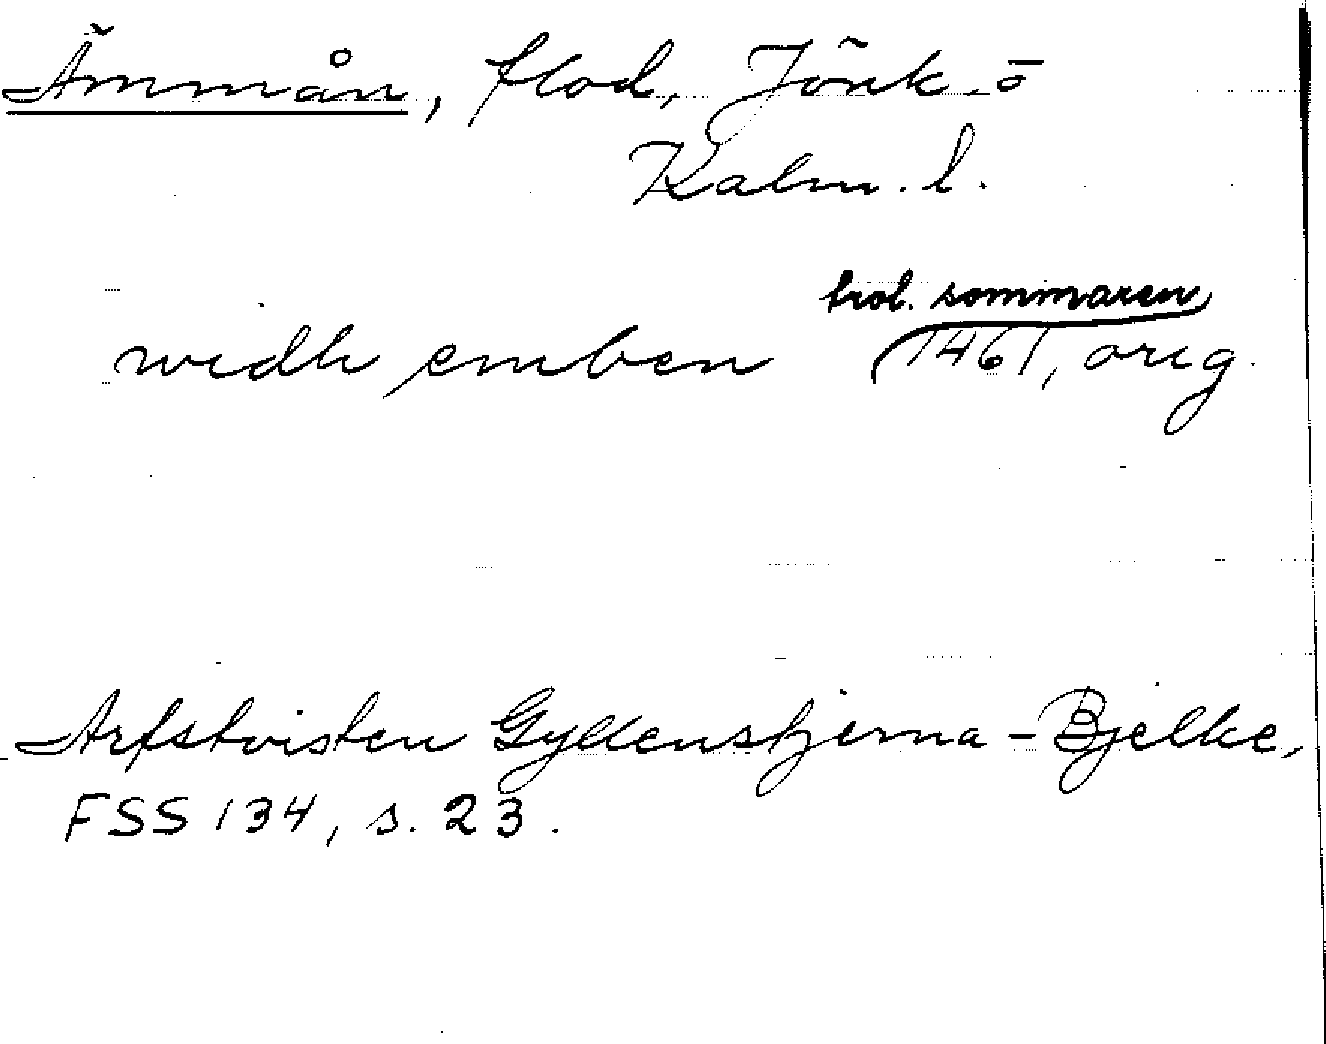 Ämmån, flod, Jönk. o
Kalm. l.
trol. sommaren
widh emben (1461, orig.
Arfstvisten Gyllenstjerna - Bjelke,
FSS 134, s. 23.